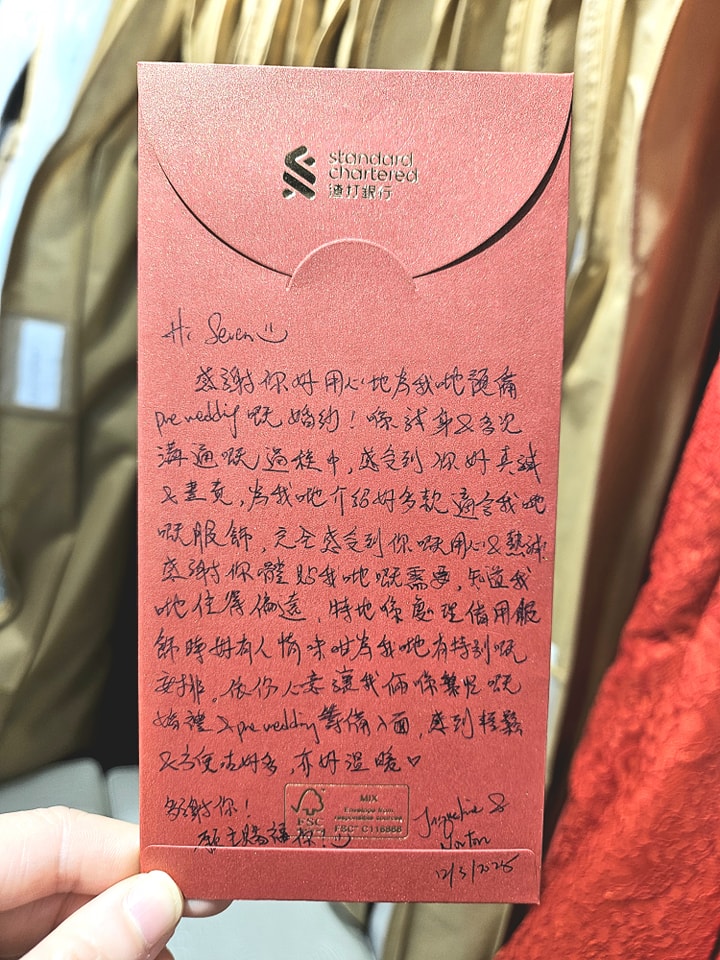 standard
chartered
渣打銀行
Hi Seven
感謝你好用心地為我哋預備
pre wedding 嘅婚紗！喺試身&多次
溝通嘅過程中，感受到你好真誠
&盡責，為我哋介紹好多款適合我哋
嘅服飾，完全感受到你嘅用心&熱誠
感謝你體貼我哋嘅需要，知道我
哋住得偏遠，特地喺處理借用服
飾時好有人情味咁為我哋有特別嘅
安排。依份心意讓我倆喺繁忙嘅
婚禮&pre wedding籌備入面，感到輕鬆
&方便咗好多，亦好溫暖
多謝你！
願主賜福你！
MIX
Envelope from
responsible sources
FSC
FSC® C116866
Jacqueline &
Norton
12/3/2025